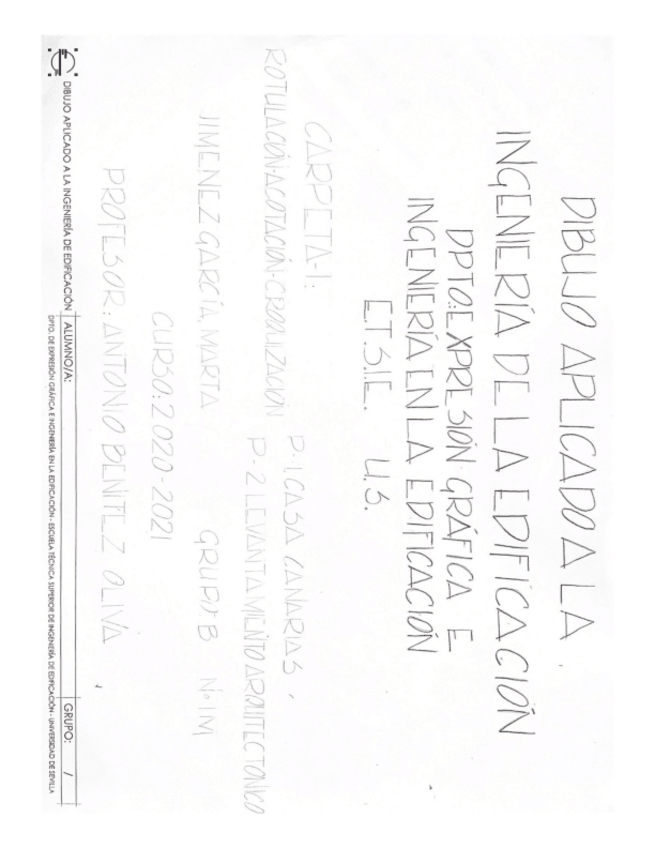 DIBUJO APLICADO A LA
INGENIERÍA DE LA EDIFICACIÓN
DPTO: EXPRESIÓN GRÁFICA E
INGENIERÍA EN LA EDIFICACIÓN
E.T.S.I.E. U.S.
CARPETA-1:
P-1.CASA CANARIAS,
ROTULACIÓN-ACOTACIÓN-CROQUIZACIÓN
P-2 LEVANTAMIENTO ARQUITECTONICO
JIMENEZ GARCÍA, MARTA GRUPO:B Nº1M
CURSO:2020-2021
PROFESOR: ANTONIO BENÍTEZ OLIVA
DIBUJO APLICADO A LA INGENIERÍA DE EDIFICACIÓN ALUMNO/A: GRUPO: /
DPTO. DE EXPRESIÓN GRÁFICA E INGENIERÍA EN LA EDIFICACIÓN - ESCUELA TÉCNICA SUPERIOR DE INGENIERÍA DE EDIFICACIÓN - UNIVERSIDAD DE SEVILLA